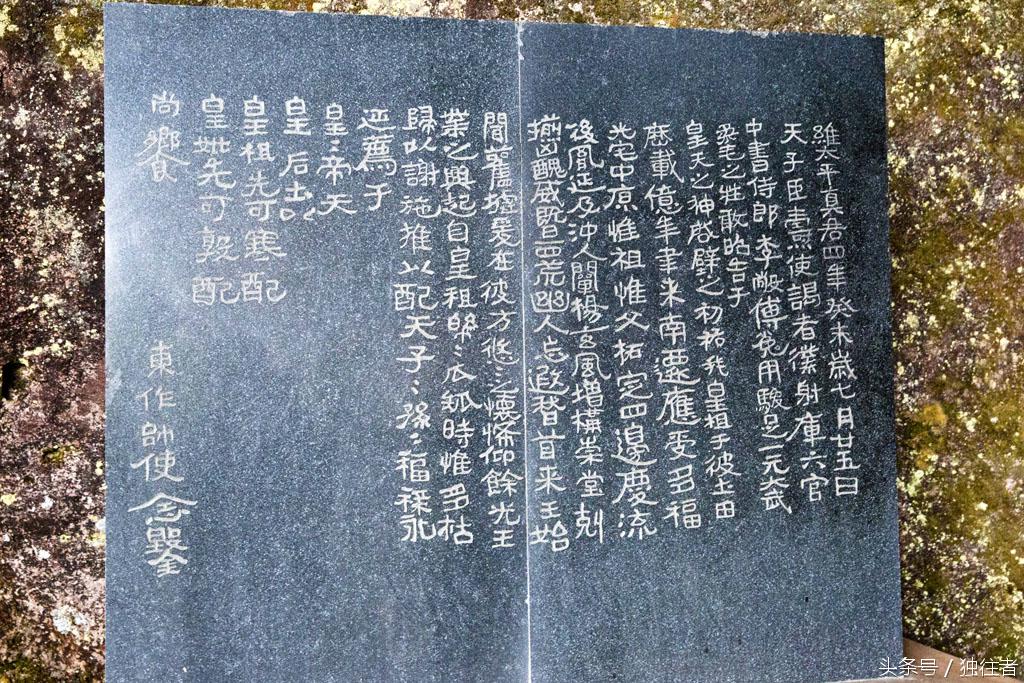 維太平真君四年癸未歲七月廿五日
天子臣燾使謁者僕射庫六官
中書侍郎李敞傅㝹用駿足一元大武
柔毛之牲敢昭告于
皇天之神啓辟之初祐我皇祖于彼土田
歷載億年聿来南遷應受多福
光宅中原惟祖惟父拓定四邊慶流
後胤延及沖人闡楊玄風增構崇堂剋
揃凶醜威暨四荒幽人忘遐稽首来王始
聞舊墟爰在彼方悠〻之懷悕仰餘光王
業之興起自皇祖綿〻瓜瓞時惟多祜
歸以謝施推以配天子〻孫〻福祿永
延薦于
皇〻帝天
皇 后土以
皇祖先可寒配
皇妣先可敦配
尚饗
東作帥使念鑿
头条号 / 独往者